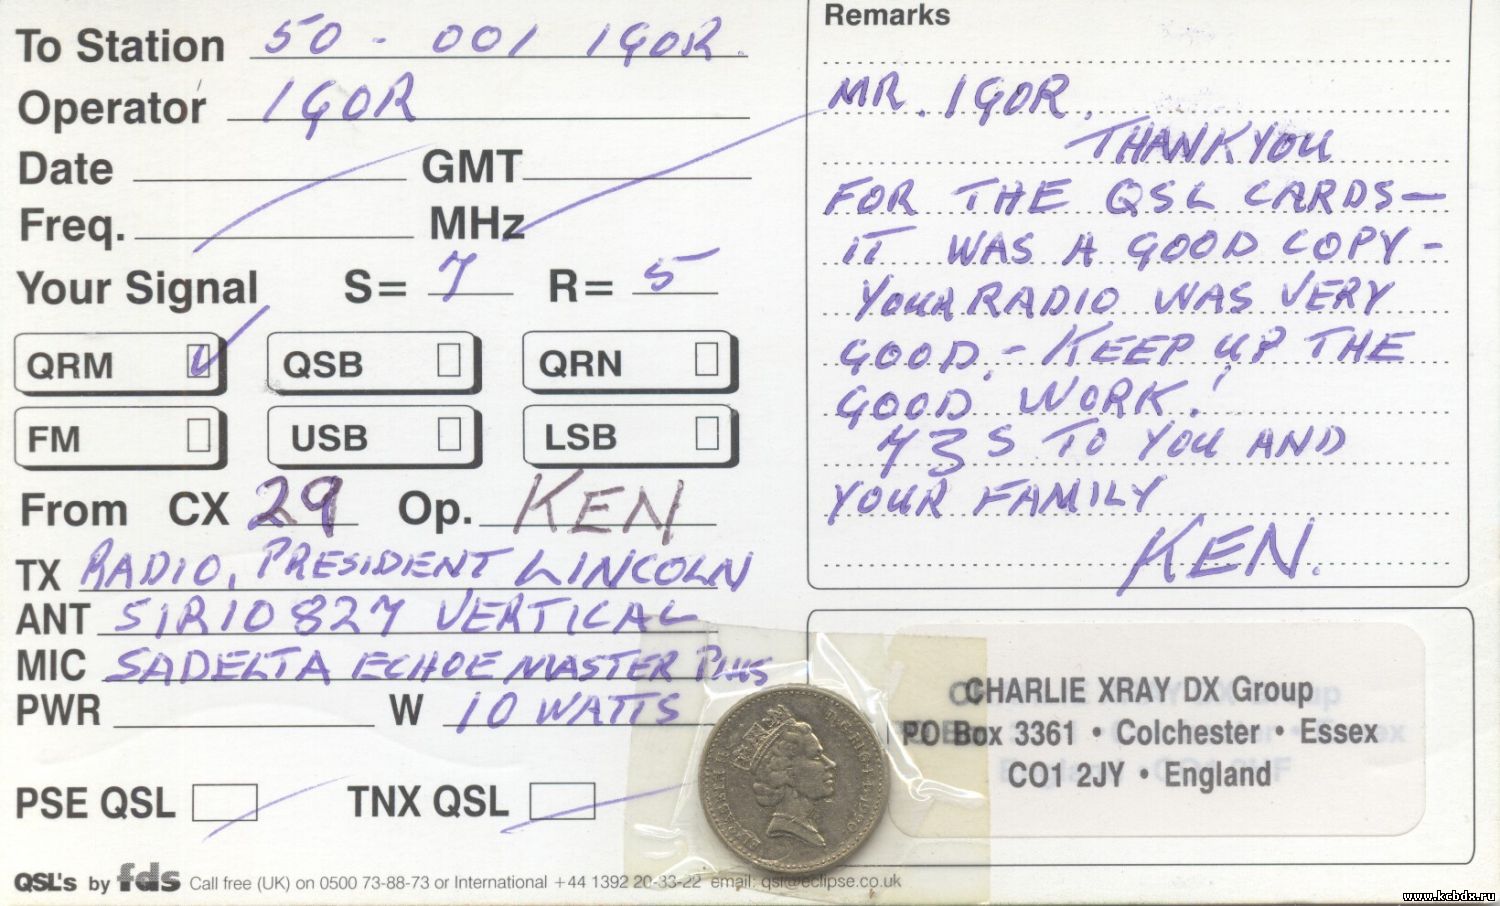 To Station 50 - 001 IGOR.
Operator IGOR
Date GMT
Freq. MHz
Your Signal S= 7 R= 5
QRM QSB QRN
FM USB LSB
From CX 29 Op. KEN
TX RADIO, PRESIDENT LINCOLN
ANT SIRIO 827 VERTICAL
MIC SADELTA ECHOE MASTER PLUS
PWR W 10 WATTS
PSE QSL TNX QSL
QSL's by fds Call free (UK) on 0500 73-88-73 or International +44 1392 20-33-22 email: qsl@eclipse.co.uk
Remarks
MR. IGOR,
THANKYOU
FOR THE QSL CARDS—
IT WAS A GOOD COPY -
YOUR RADIO WAS VERY
GOOD. - KEEP UP THE
GOOD WORK!
73S TO YOU AND
YOUR FAMILY
KEN.
CHARLIE XRAY DX Group
PO Box 3361 • Colchester • Essex
CO1 2JY • England
www.kcbdx.ru